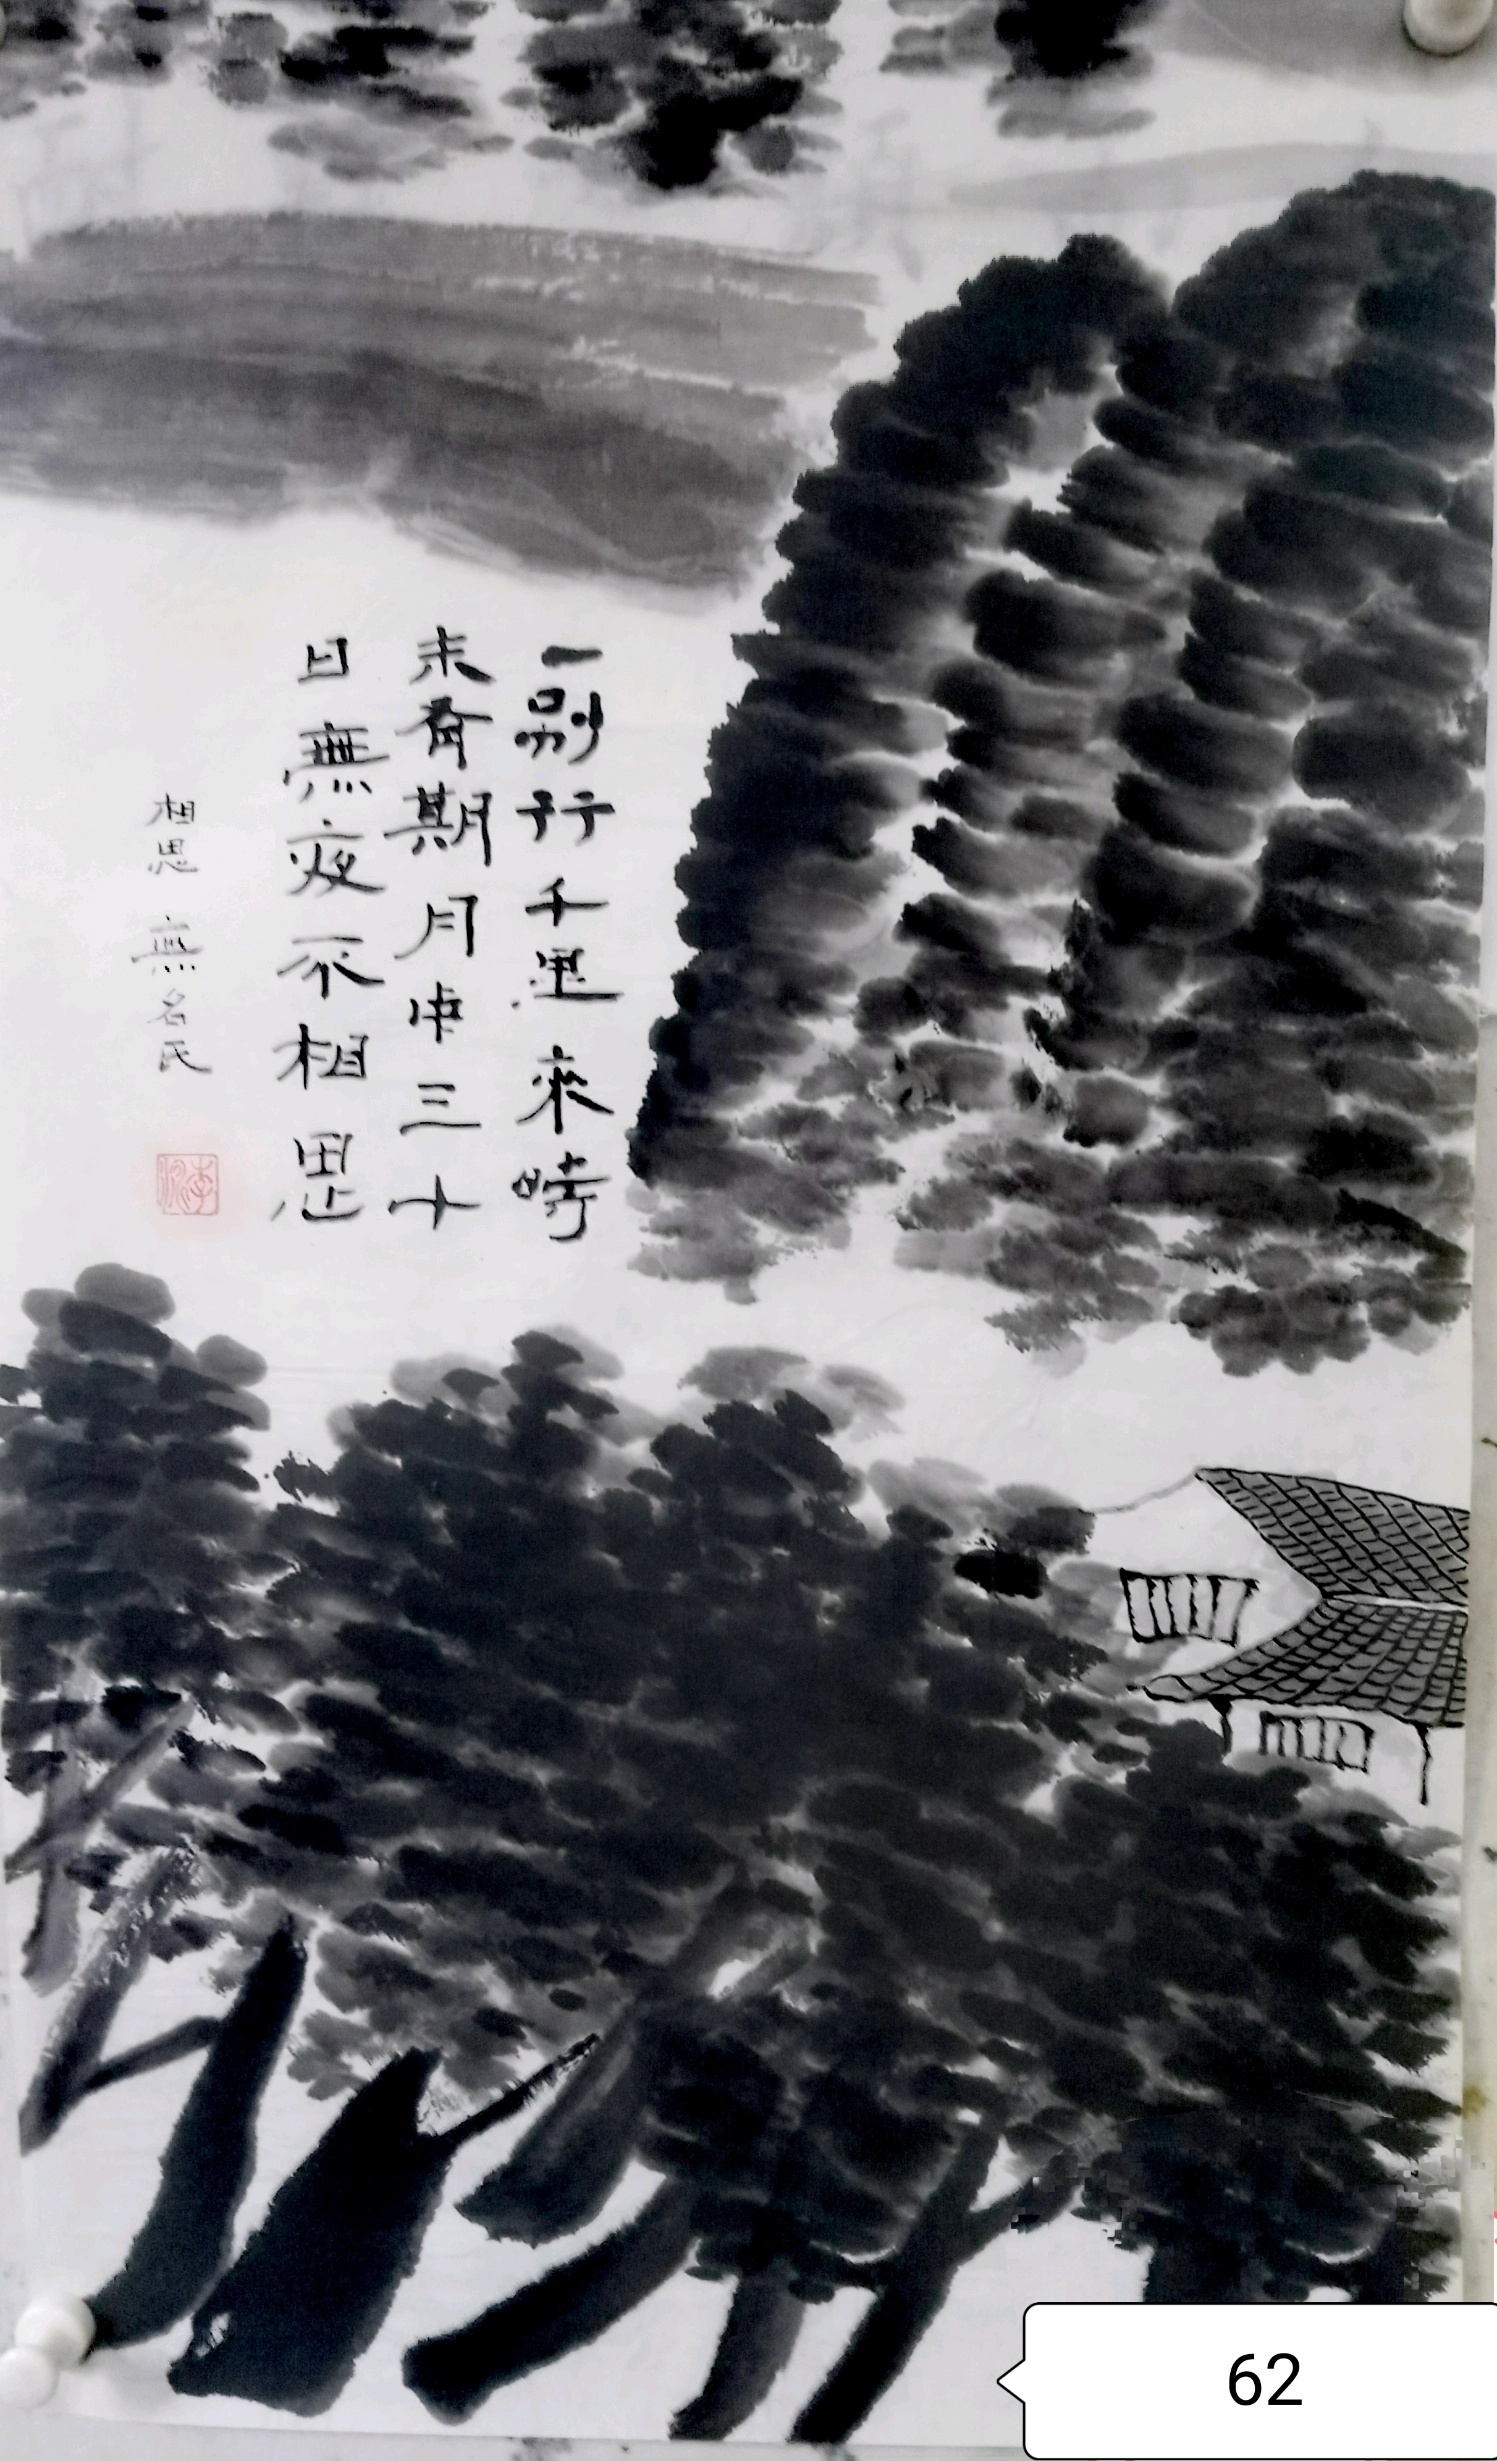 一別行千里來時
未有期月中三十
日無夜不相思
相思 無名氏
62